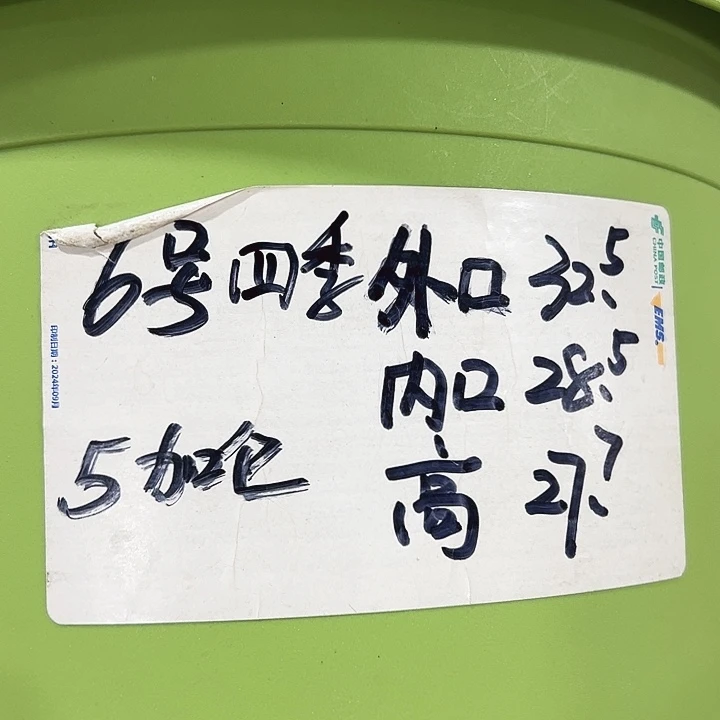 6号四季 外口 32.5
内口 28.5
5加仑 高 27.7
中国邮政
CHINA POST
EMS
印制日期：2024年09月